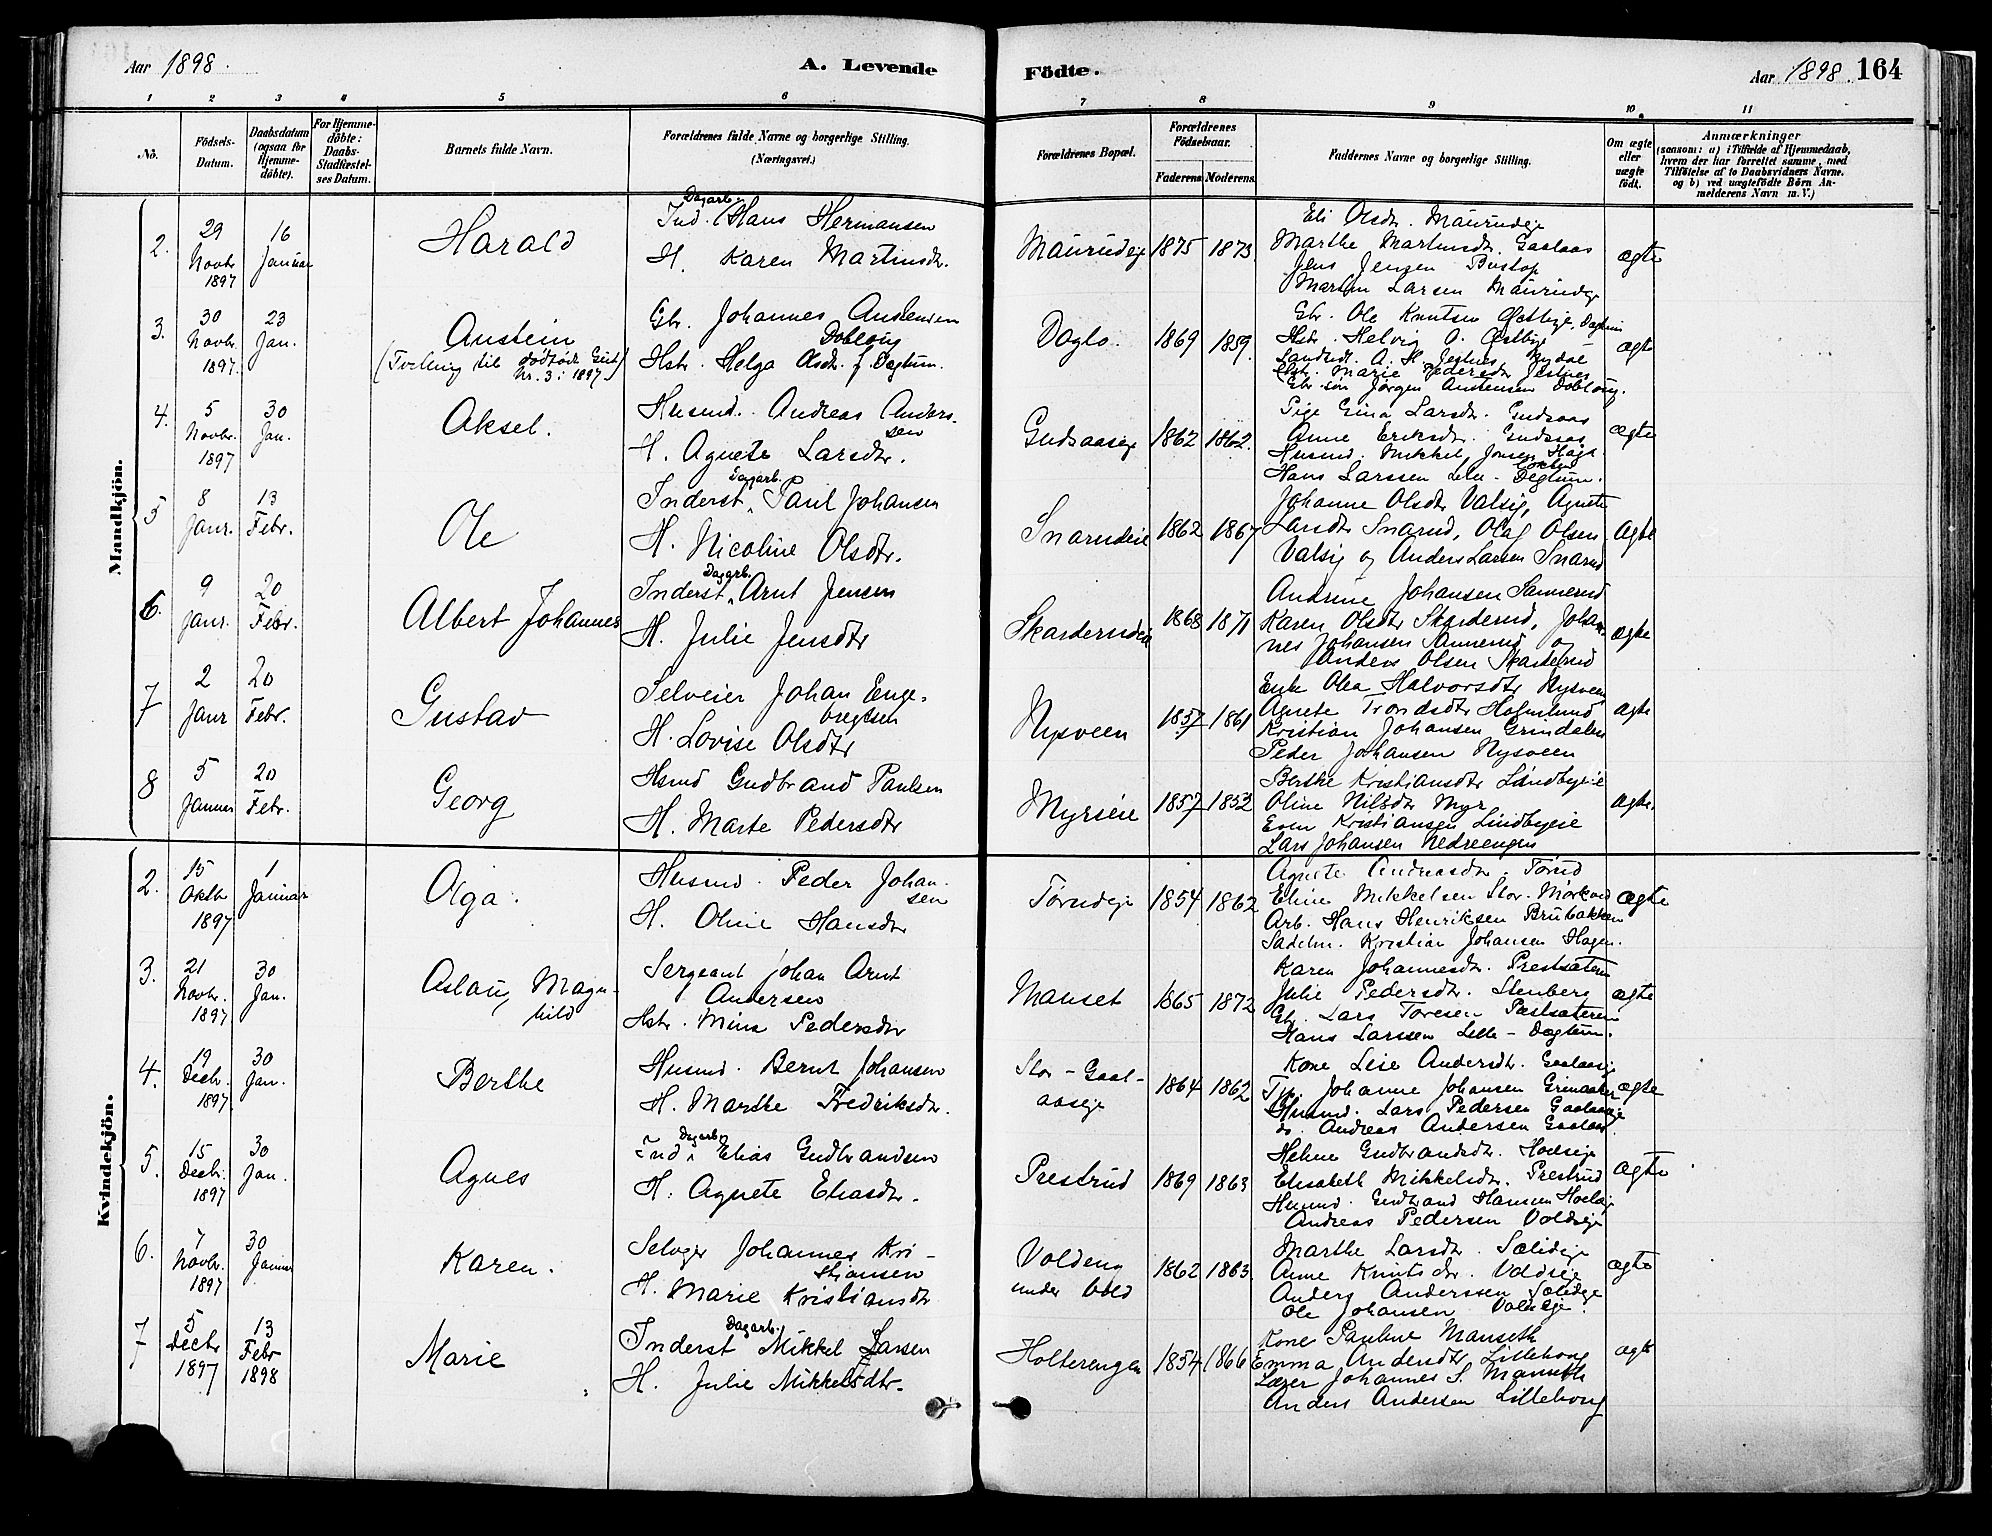 Aar 1898.
A. Levende
Födte.
Aar 1898. 164
1 2 3 4 5 6 7 8 9 10. 11
No.
Födsels-Datum.
Daabsdatum (ogsaa for Hjemme-döbte).
For Hjemme-döbte: Daabs-Stadfæstel-ses Datum.
Barnets fulde Navn.
Forældrenes fulde Navne og borgerlige Stilling.
(Næringsvei.)
Forældrenes Bopæl.
Forældrenes Födselsaar.
Faderens. Moderens.
Faddernes Navne og borgerlige Stilling.
Om ægte eller uægte födt.
Anmærkninger
(saasom: a) i Tilfælde af Hjemmedaab,
hvem der har forrettet samme, med
Tilföielse af to Daabsvidners Navne.
og b) ved uægtefödte Börn An-
melderens Navn m. V.)
Mandkjön.
2. 29 Novbr 1897 16 Januar Harald
Dagarb.
Ind. Hans Hermansen
H. Karen Martinsdr.
Maurudeje 1875 1873
Eli Olsdr. Maurudeje
Marthe Martinsdr. Gaalaas
Jens Jensen Bustop
Martin Larsen Maurudeje
ægte
3. 30 Novbr. 1897. 23 Jan. Austein
(Tvilling til dødfødt Gut Nr. 3 i 1897)
Gbr. Johannes Austensen
Dobloug
Hstr. Helga Olsdr. f. Dægtum.
Doglo. 1869 1859.
Gbr. Ole Knutsen Østbye, Dægtum
Hstr. Helvig O. Østbye
Landhdl. A. H. Jestnes Nydal
Hstr. Marie Pedersdr Jestnes
Gbr. søn Jørgen Austensen Dobloug.
ægte
4. 5 Novbr. 1897 30 Jan. Aksel.
Husmd. Andreas Anders-
sen
H. Agnete Larsdr.
Gudsaaseje 1862 1862.
Pige Gina Larsdr. Gudsaas
Anne Eriksdr. Gudsaas
Husmd. Mikkel Jonsen
Hans Larssen Lille-Dægtum.
ægte
5 8 Janr. 13 Febr. Ole
Dagarb.
Inderst, Paul Johansen
H. Nicoline Olsdtr.
Snarudeie 1862 1867
Johanne Olsdtr Valsig, Agnete
Larsdtr Snarud, Olaf Olsen
Valsig og Anders Larsen Snarud
ægte
6. 9 Janr. 20 Febr. Albert Johannes
Dagarb.
Inderst, Arnt Jensen
H. Julie Jensdtr
Skarderudeie 1868 1871
Andrine Johansen Sannerud
Karen Olsdtr Skarderud, Johan-
nes Johansen Sannerud og
Anders Olsen Skarderud
ægte
7 2 Janr 20 Febr. Gustav
Selveier Johan Enge-
bregtsen
H. Lovise Olsdtr
Nysveen 1857 1861
Enke Olea Halvorsdtr Nysveen
Agnete Trondsdtr Holmlund
Kristian Johansen Grindalen
Peder Johansen Nysveen
ægte
8 5 Januar 20 Febr. Georg
Hsmd Gudbrand Paulsen
H. Marte Pedersdtr
Myrseie 1857 1852
Berthe Kristiansdtr Lindbyeie
Oline Nilsdtr Myr
Even Kristiansen Lindbyeie
Lars Johansen Nedreengen
ægte.
Kvindekjön.
2. 15 Oktbr 1897 1 Januar Olga.
Husmd. Peder Johan-
sen
H. Oline Hansdtr
Torudeje 1854 1862
Agnete Andreasdr. Torud
Eline Mikkelsen Stor-Mørkved
Arb. Hans Henriksen Brubakken
Sadelm. Kristian Johansen Hagen.
ægte
3. 21 Novbr. 1897 30 Jan. Aslaug Magn-
hild
Sergeant Johan Arnt
Andersen
Hstr. Mina Pedersdtr
Manset 1865 1872
Karen Johannesdr. Prestsæteren
Julie Pedersdtr. Stenberg
Gbr. Lars Toresen Prestsæteren
Hans Larssen Lille-Dægtum.
ægte
4. 19 Decbr. 1897 30 Jan. Berthe
Husmd. Bernt Johansen
H. Marthe Fredriksdr.
Stor-Gaal-
aaseje 1864 1862
Kone Lise Andersdr. Gaalaaseje
Johanne Johansen Grimaaker
Husmd. Lars Pedersen Gaalaaseje
do. Andreas Andersen Gaalaas.
ægte
5. 15 Decbr. 1897 30 Jan. Agnes
Dagarb.
Ind. Elias Gudbrandsen
H. Agnete Eliasdr.
Prestrud 1869 1863
Helene Gudbrandsdr. Hoelseje
Elisabeth Mikkelsdr. Prestrud
Husmd. Gudbrand Hansen Hoelseje
Andreas Pedersen Voldseje
ægte
6. 7 Novbr. 1897 30 Januar Karen.
Selvejer Johannes Kri-
stjansen
H. Marie Kristiansdtr
Voldeng
under Vold 1862 1863.
Marthe Larsdtr. Sælideje
Anne Knutsdr. Voldseje
Anders Anderssen Sælideje
Ole Johansen Voldseje.
ægte
7 5 Decbr 1897 13 Febr 1898 Marie
Dagarb.
Inderst Mikkel Larsen
H. Julie Mikkelsdtr.
Holterengen 1854 1866
Kone Pauline Manseth
Emma Andersdtr Lilleborg
Lærer Johannes S. Manseth
Anders Andersen Lilleborg
ægte